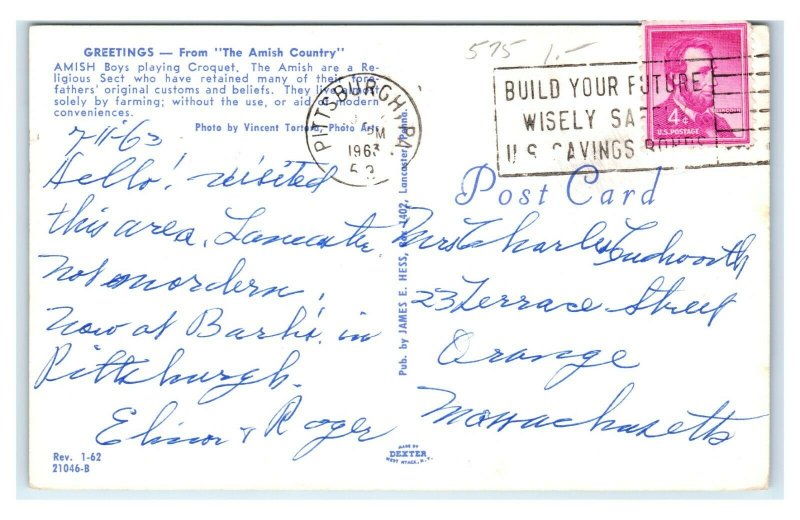 GREETINGS — From "The Amish Country"
AMISH Boys playing Croquet. The Amish are a Re-
ligious Sect who have retained many of their fore-
fathers' original customs and beliefs. They live almost
solely by farming; without the use, or aid of modern
conveniences.
Photo by Vincent Tortora, Photo Arts
7-11-63
Hello! visited
this area, Lancaster
Not mordern,
Now at Barb's in
Pittsburgh.
Elinor & Roger
Rev. 1-62
21046-B
Pub. by JAMES E. HESS, Box 1402, Lancaster, Penna.
575 1.-
PITTSBURGH, PA.
PM
1963
BUILD YOUR FUTURE
WISELY SAFELY
U.S. SAVINGS BONDS
4¢
U.S. POSTAGE
Post Card
Mrs Charles Cudworth
23 Terrace Street
Orange
Massachusetts
MADE BY
DEXTER
WEST NYACK, N.Y.